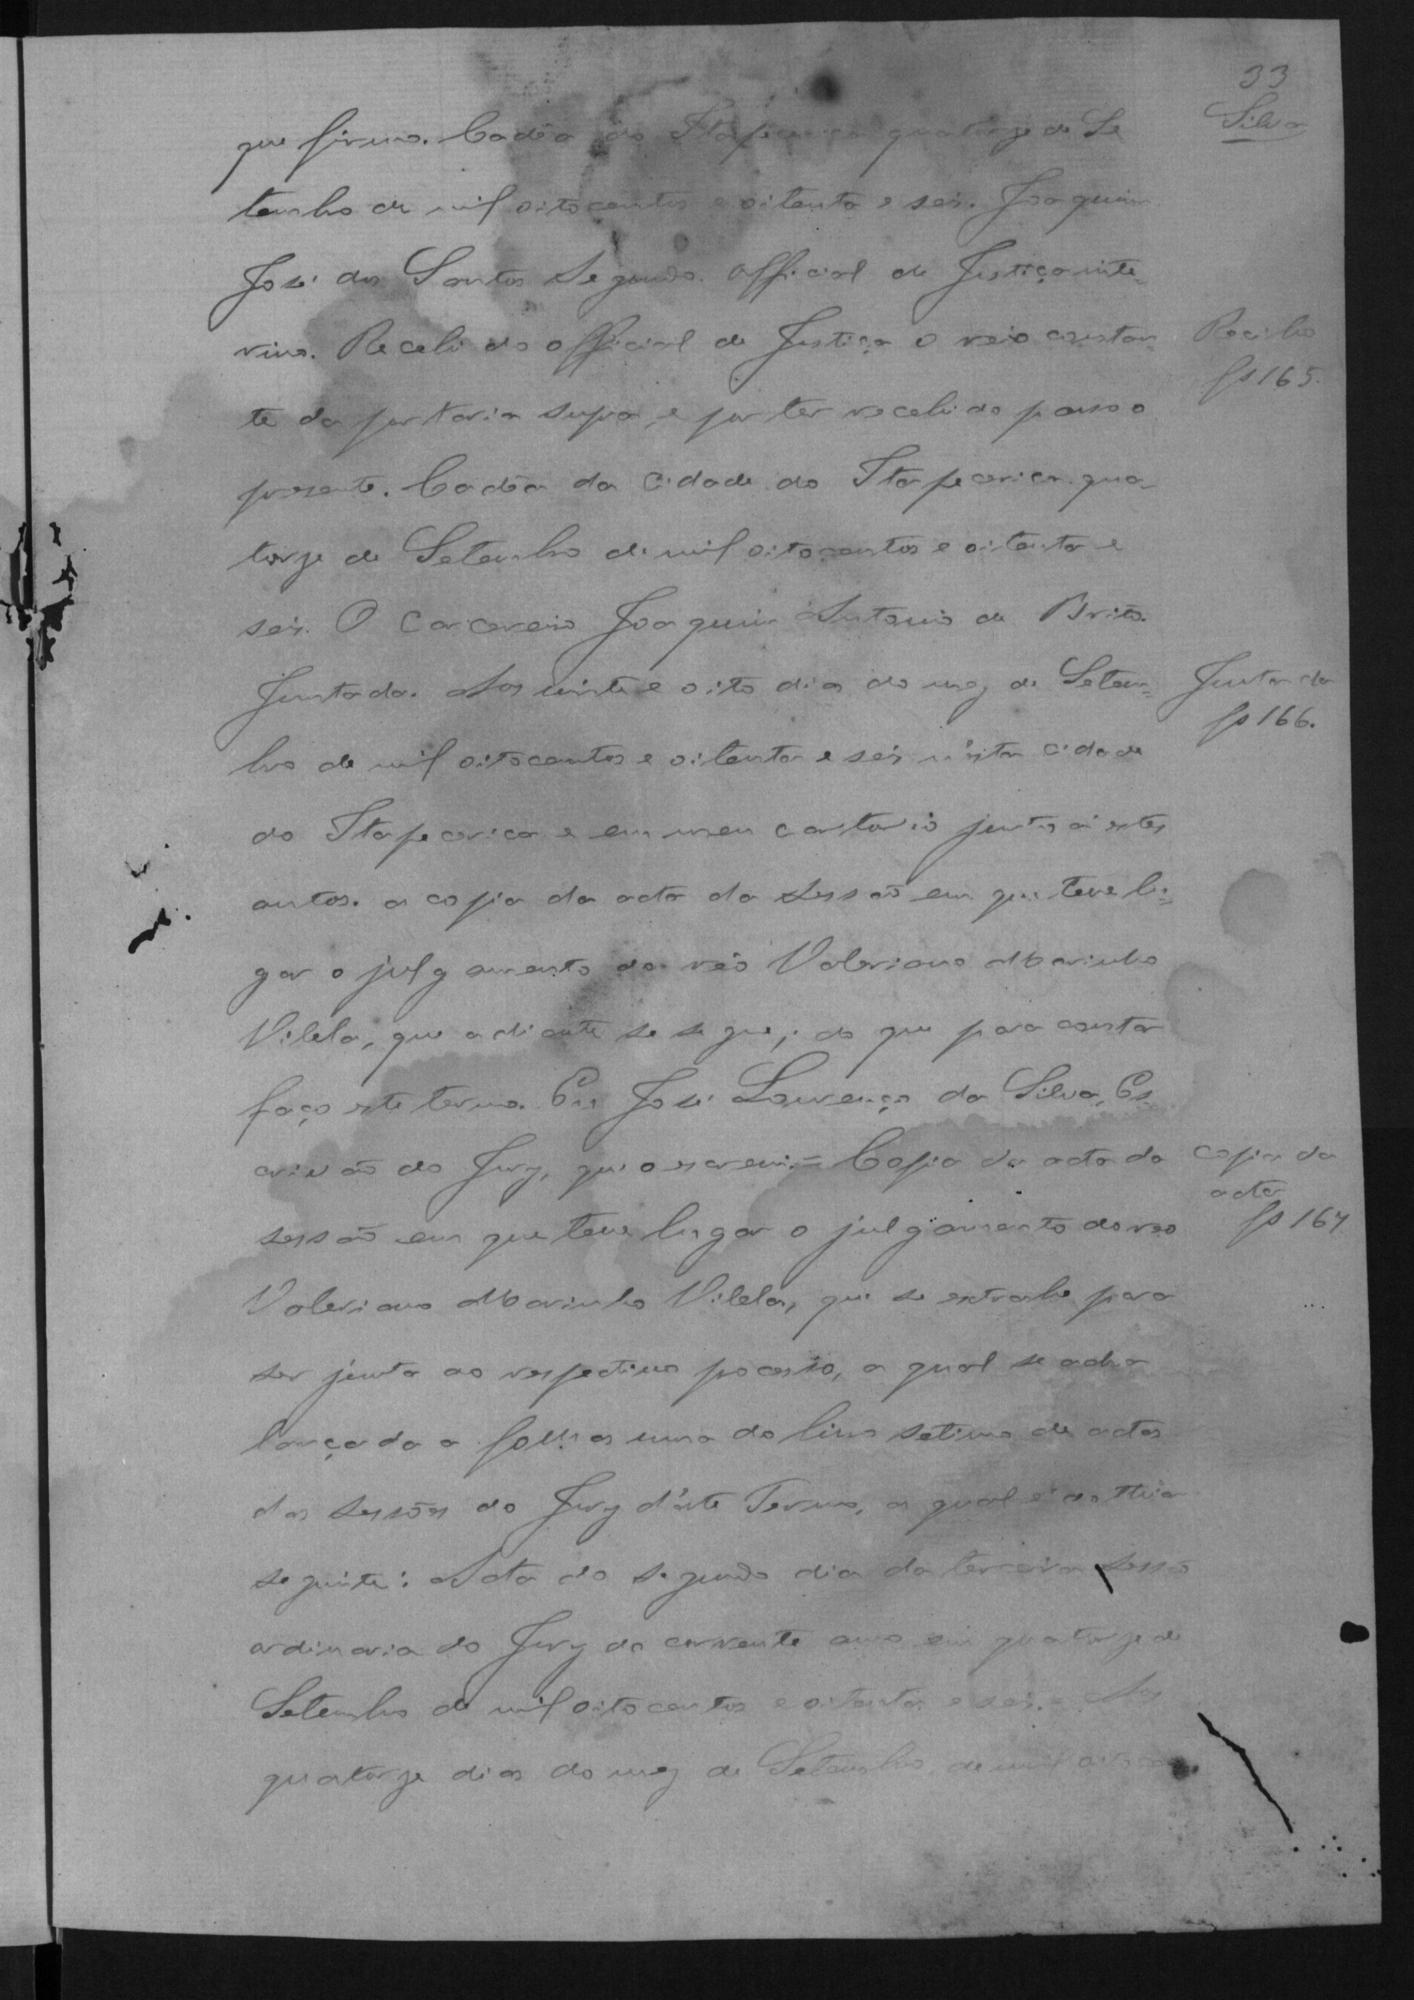 33
Silva
que firmo. Cadêa do Itapecerica quatorze de Se
tembro de mil oitocentos e oitenta e seis. Joaquim
José dos Santos Segundo. Official de Justiça inte
rino. Recebi do official de Justiça o reo constan
Recibo
fs 165.
te da portaria supra, e por ter recebido passo o
presente. Cadêa da Cidade do Itapecerica qua-
torze de Setembro de mil oitocentos e oitenta e
seis. O Carcereiro Joaquim Antonio de Brito.
Juntada. Aos vinte e oito dias do mez de Setem=
Juntada
fs 166.
bro de mil oitocentos e oitenta e seis n'esta cidade
do Itapecerica e em meu cartorio junto á estes
autos. a copia da acta da sessão em que teve lu=
gar o julgamento do réo Valeriano Marinho
Vilela, que adiante se segue; do que para constar
faço este termo. Eu José Lourenço da Silva, Es
crivão do Jury, que o escrevi.= Copia da acta da
Copia da
acta
fs 167
sessão em que teve lugar o julgamento do reo
Valeriano Marinho Vilela, que se extrahe para
ser junta ao respectivo pocesso, a qual se acha
lançada a folhas uma do livro setimo de actas
das sessões do Jury d'este Termo, a qual é do theor
seguinte: Acta do segundo dia da terceira sessão
ordinaria do Jury do corrente anno em quatorze de
Setembro de mil oitocentos e oitenta e seis.= Aos
quatorze dias do mez de Setembro de mil oitocen